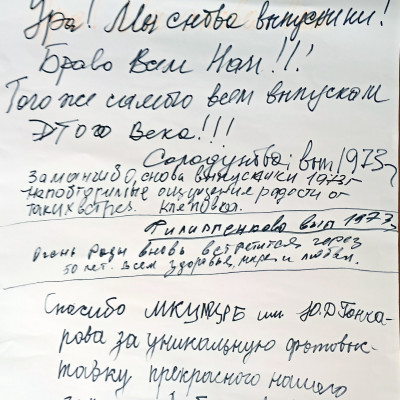 Ура! Мы снова выпускники!
Браво Всем Нам!!!
Того же самого всем выпускам
Этого Века!!!
вып 1973
снова выпускники 1973г
Неповторимые ощущения радости от
таких встреч.
Филиппенкова вып 1973
Очень рады вновь встретится через
50 лет. Всем здоровья, мира и любви.
Спасибо МКУМЦРБ им Ю.Д Гонча-
рова за уникальную фотовыс-
тавку прекрасного нашего